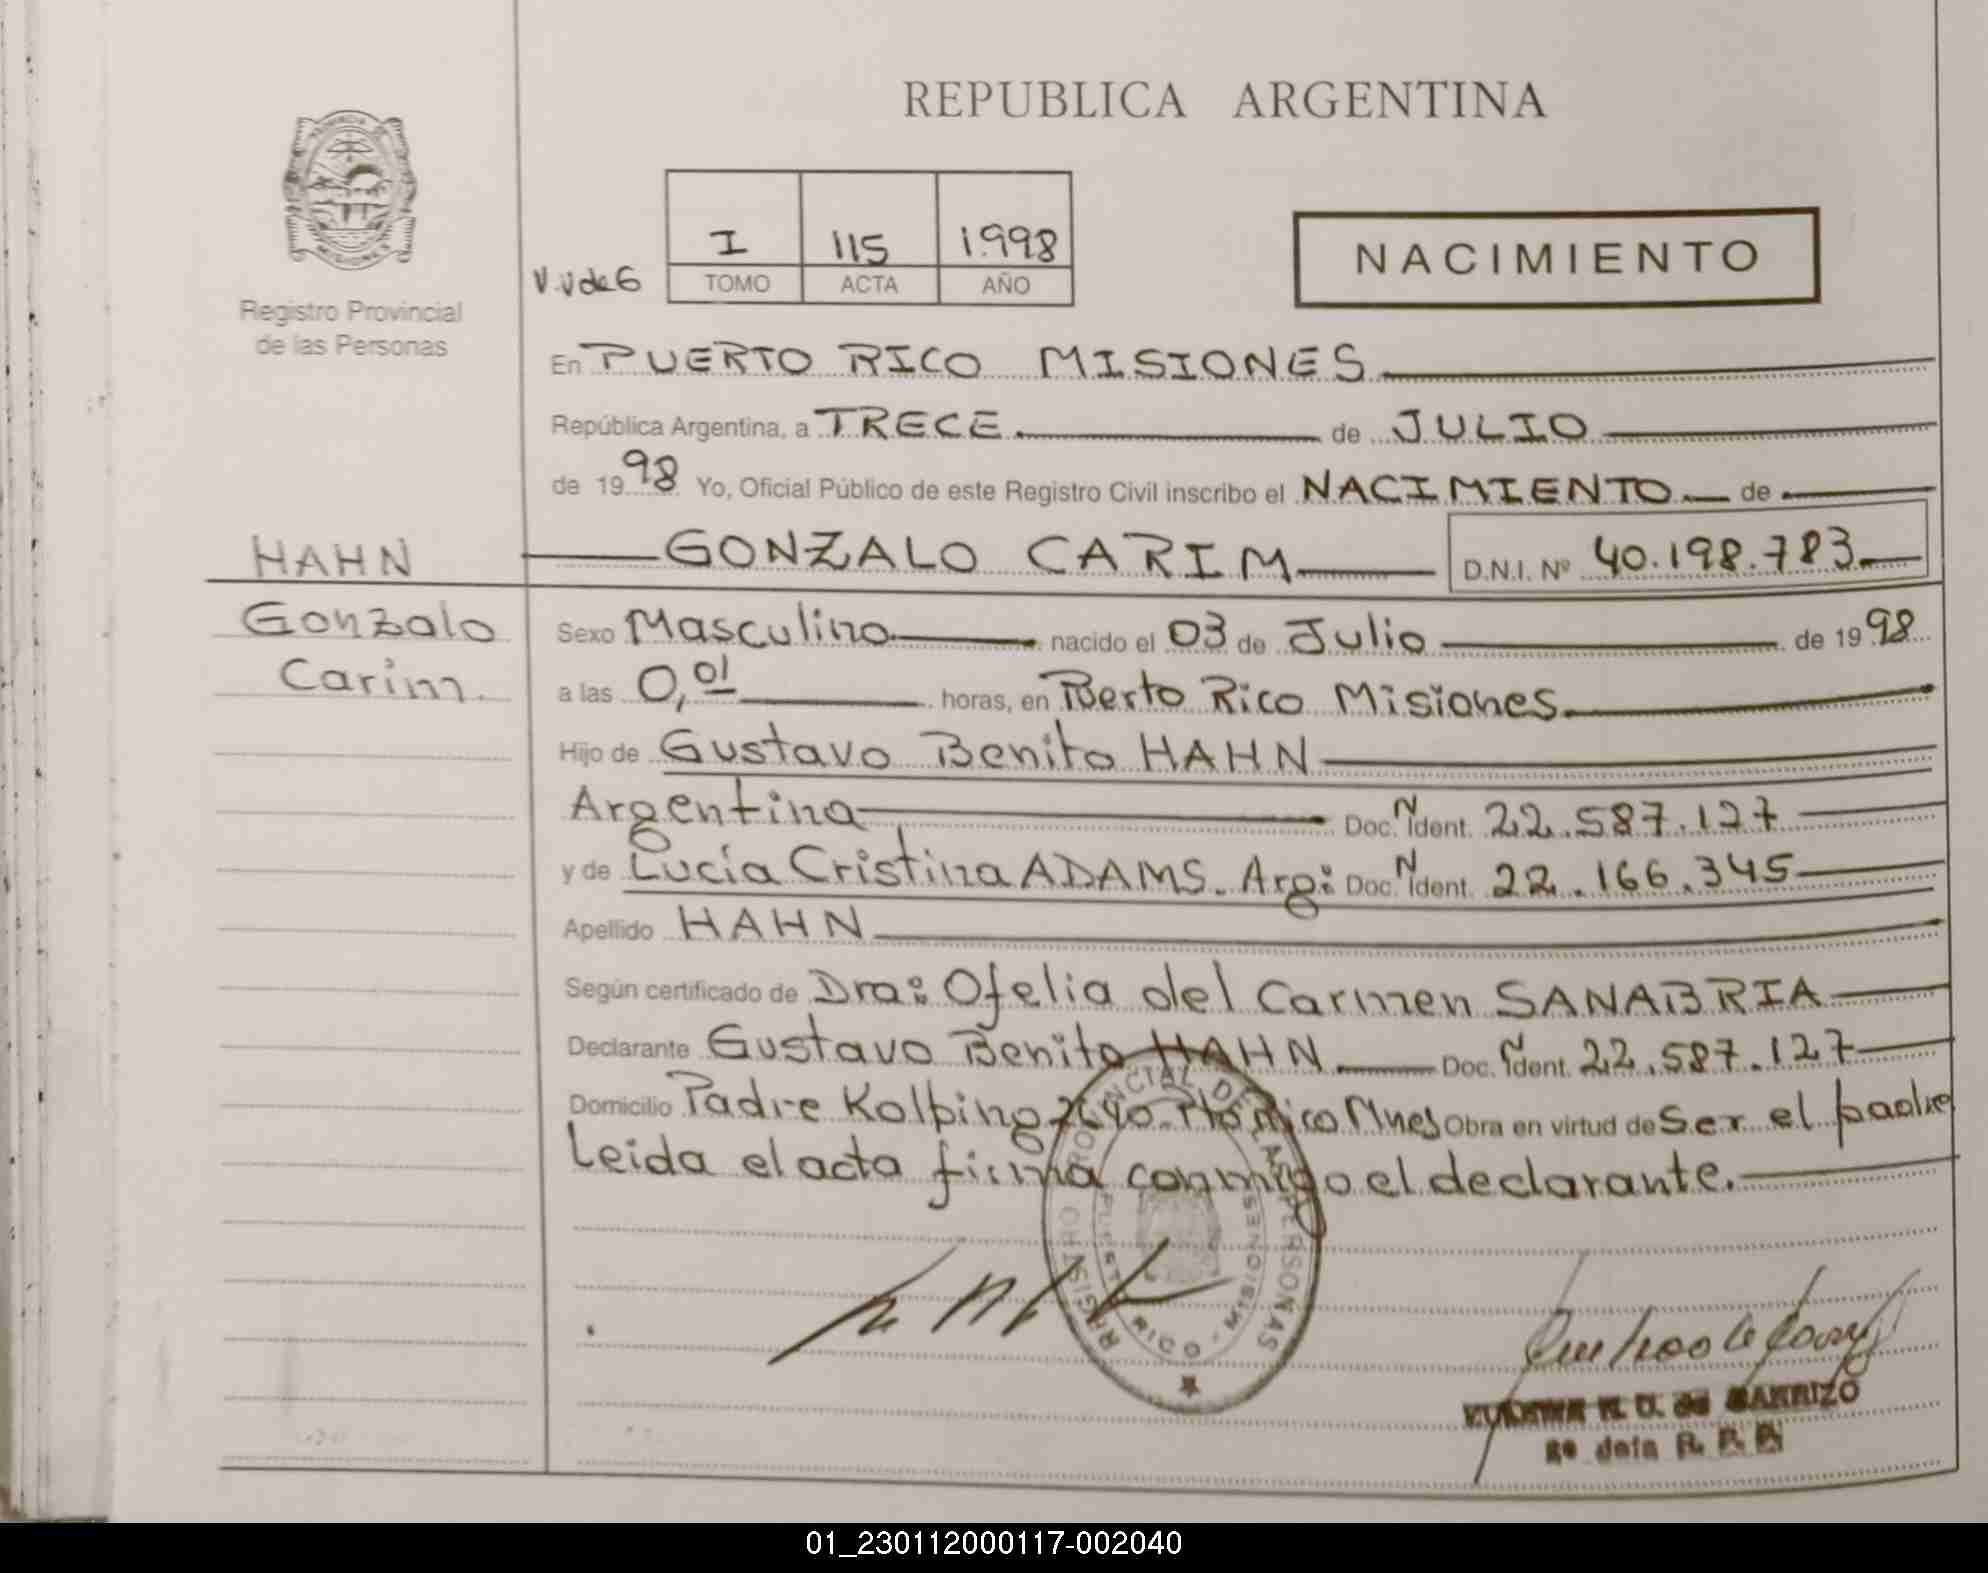 REPUBLICA ARGENTINA
Registro Provincial
de las Personas
I 115 1998
TOMO ACTA AÑO
NACIMIENTO
En PUERTO RICO MISIONES
República Argentina, a TRECE de JULIO
de 1998 Yo, Oficial Público de este Registro Civil inscribo el NACIMIENTO de
HAHN
GONZALO CARIM D.N.I. Nº 40.198.783
Gonzalo
Carim.
Sexo Masculino nacido el 03 de Julio de 1998
a las 0,01 horas, en Puerto Rico Misiones
Hijo de Gustavo Benito HAHN
Argentina Doc. N Ident. 22.587.127
y de Lucia Cristina ADAMS. Arg: Doc. N Ident. 22.166.345
Apellido HAHN
Según certificado de Dra: Ofelia del Carmen SANABRIA
Declarante Gustavo Benito HAHN Doc. N Ident. 22.587.127
Domicilio Padre Kolping Obra en virtud de Ser el padre
Leida el acta firma conmigo el declarante.
REGISTRO PROVINCIAL DE LAS PERSONAS
PUERTO RICO - MISIONES
01_230112000117-002040